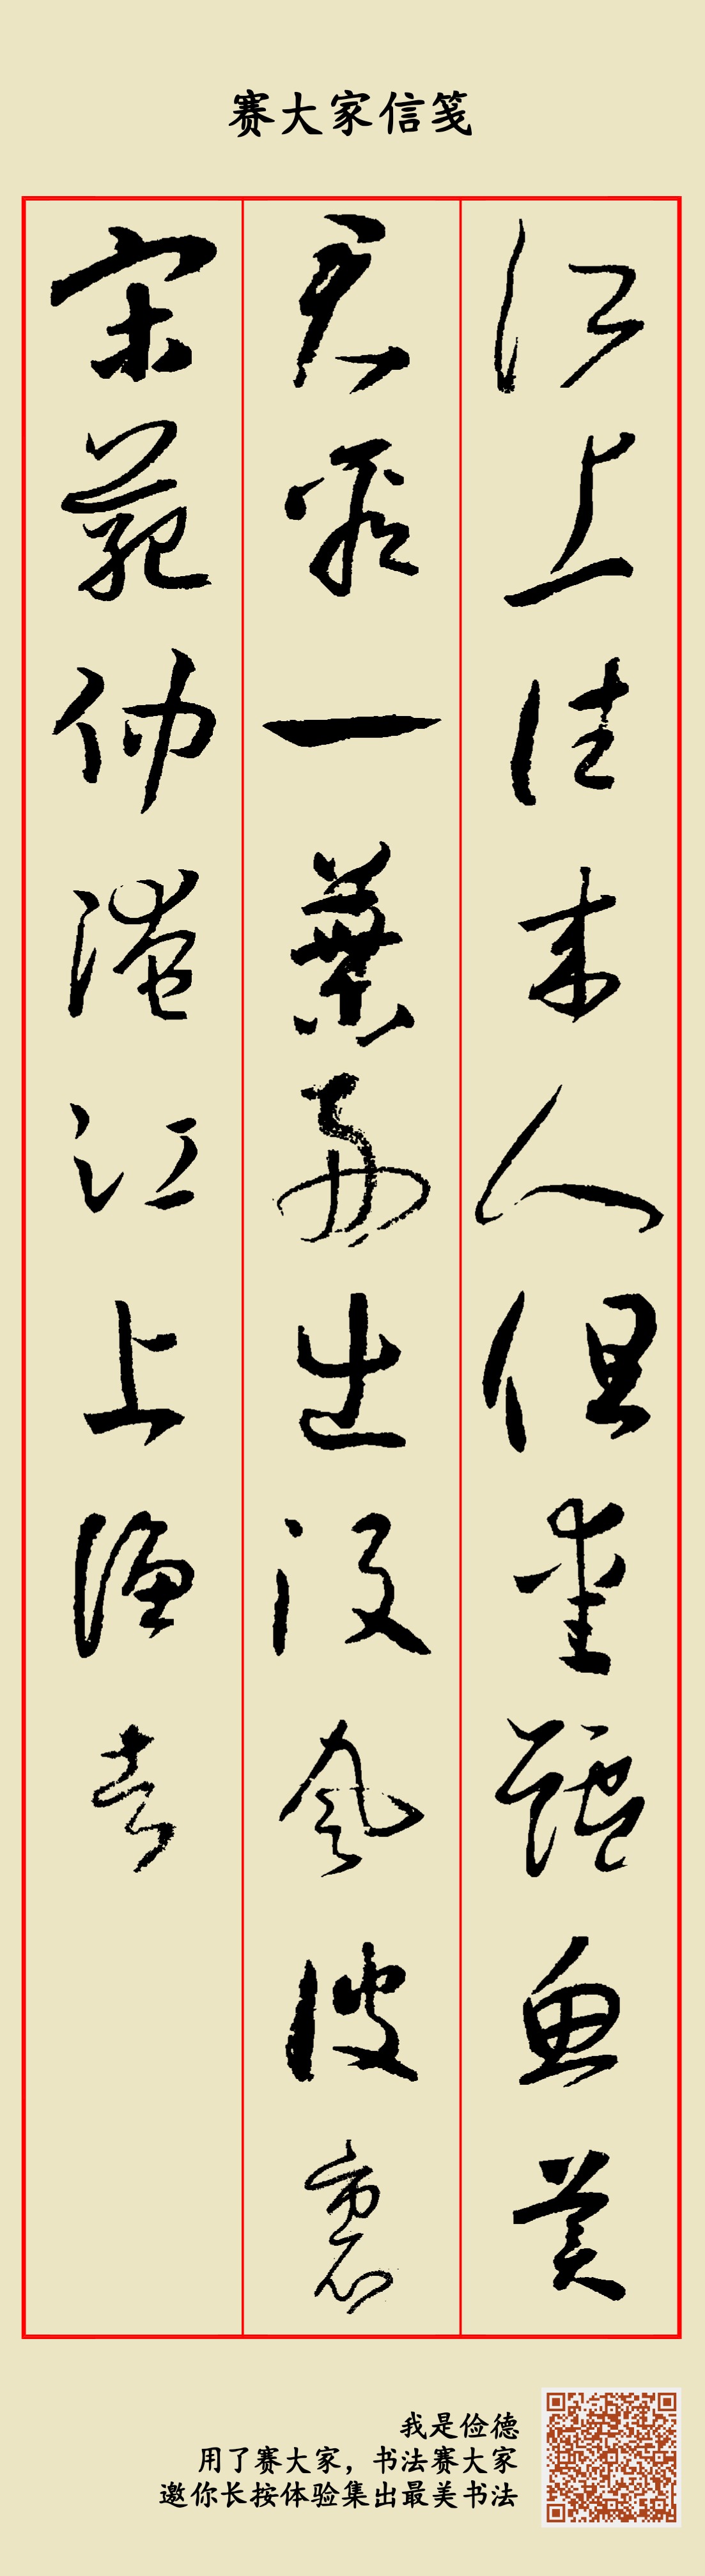 赛大家信笺
江上往来人但爱鲈鱼美
君看一叶舟出没风波里
宋范仲淹江上渔者
我是俭德
用了赛大家，书法赛大家
邀你长按体验集出最美书法